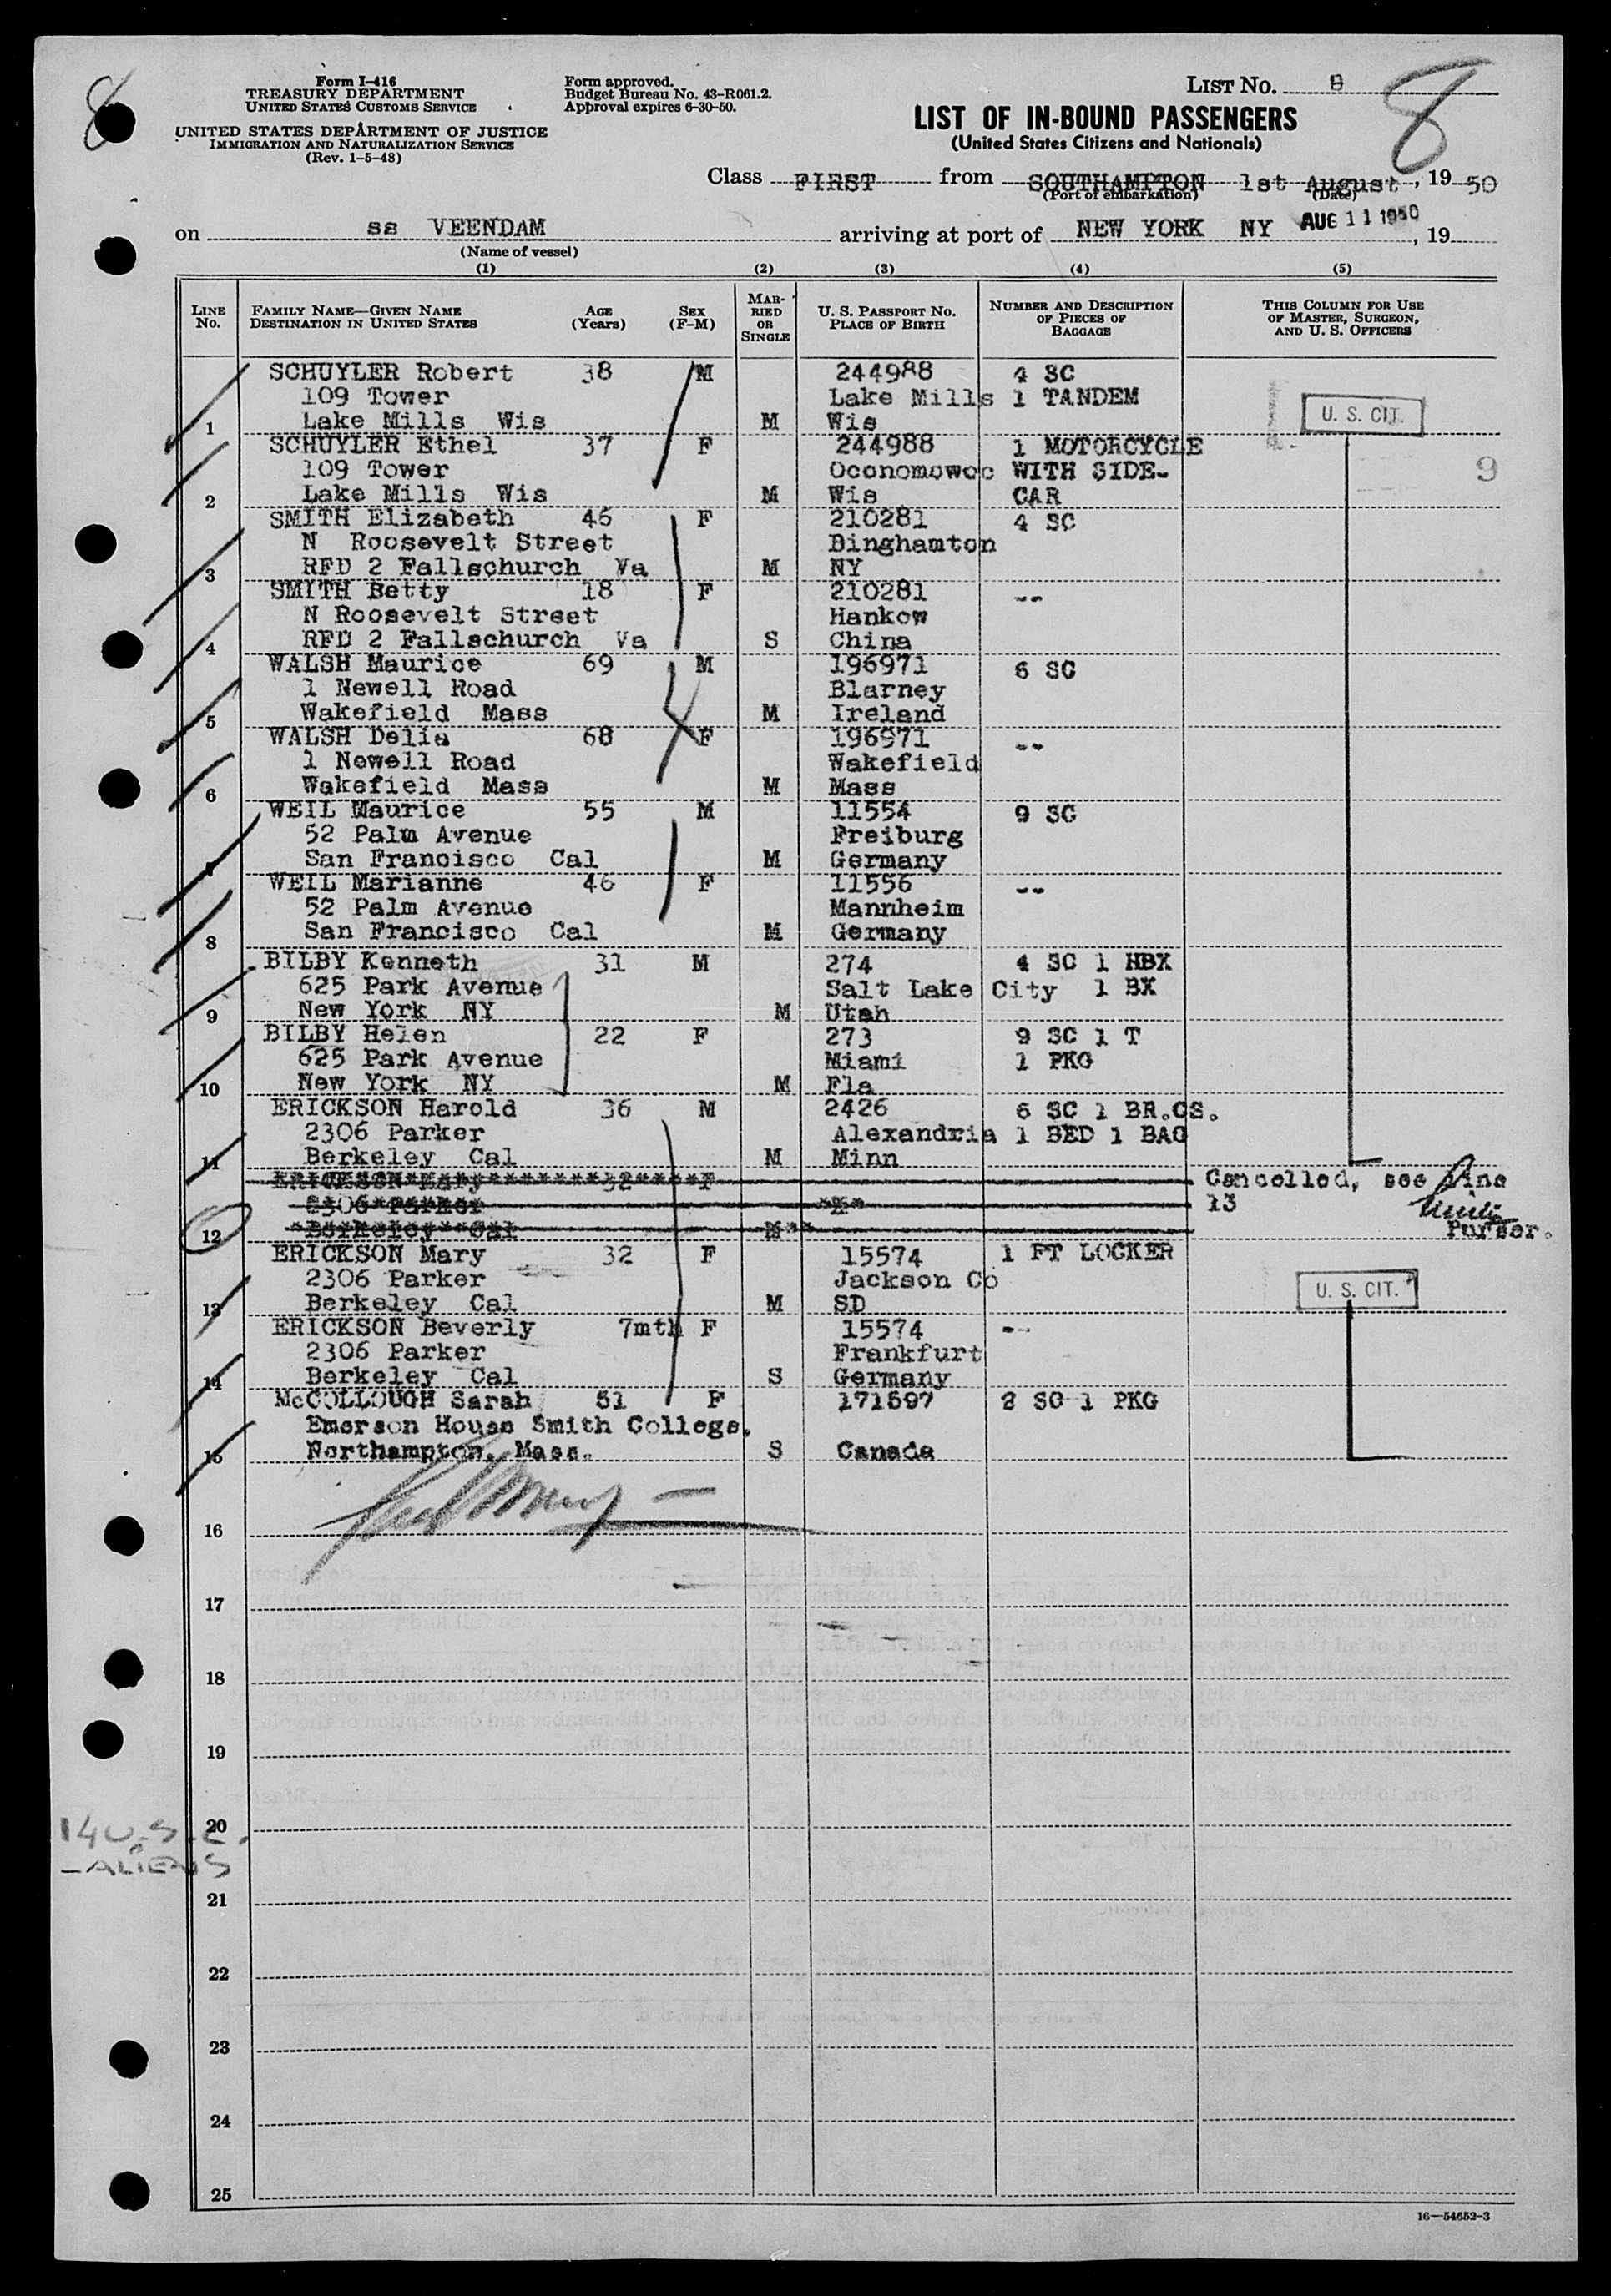 Form I-416
TREASURY DEPARTMENT
UNITED STATES CUSTOMS SERVICE
UNITED STATES DEPARTMENT OF JUSTICE
IMMIGRATION AND NATURALIZATION SERVICE
(Rev. 1-5-48)
Form approved.
Budget Bureau No. 43-R061.2.
Approval expires 6-30-50.
8
LIST No. 8
8
LIST OF IN-BOUND PASSENGERS
(United States Citizens and Nationals)
Class FIRST from SOUTHAMPTON 1st August, 19 50
(Port of embarkation) (Date)
on ss VEENDAM arriving at port of NEW YORK NY AUG 11 1950, 19
(Name of vessel)
(1) (2) (3) (4) (5)
LINE No.
FAMILY NAME—GIVEN NAME
DESTINATION IN UNITED STATES
AGE (Years)
SEX (F-M)
MARRIED OR SINGLE
U. S. PASSPORT No.
PLACE OF BIRTH
NUMBER AND DESCRIPTION OF PIECES OF BAGGAGE
THIS COLUMN FOR USE OF MASTER, SURGEON, AND U. S. OFFICERS
SCHUYLER Robert 38 M 244988 4 SC
109 Tower Lake Mills 1 TANDEM
1 Lake Mills Wis M Wis U. S. CIT.
SCHUYLER Ethel 37 F 244988 1 MOTORCYCLE
109 Tower Oconomowoc WITH SIDE- 9
2 Lake Mills Wis M Wis CAR
SMITH Elizabeth 46 F 210281 4 SC
N Roosevelt Street Binghamton
3 RFD 2 Fallschurch Va M NY
SMITH Betty 18 F 210281 --
N Roosevelt Street Hankow
4 RFD 2 Fallschurch Va S China
WALSH Maurice 69 M 196971 6 SC
1 Newell Road Blarney
5 Wakefield Mass M Ireland
WALSH Delia 68 F 196971 --
1 Newell Road Wakefield
6 Wakefield Mass M Mass
WEIL Maurice 55 M 11554 9 SC
52 Palm Avenue Freiburg
7 San Francisco Cal M Germany
WEIL Marianne 46 F 11556 --
52 Palm Avenue Mannheim
8 San Francisco Cal M Germany
BILBY Kenneth 31 M 274 4 SC 1 HBX
625 Park Avenue Salt Lake City 1 BX
9 New York NY M Utah
BILBY Helen 22 F 273 9 SC 1 T
625 Park Avenue Miami 1 PKG
10 New York NY M Fla
ERICKSON Harold 36 M 2426 6 SC 1 BR.CS.
2306 Parker Alexandria 1 BED 1 BAG
11 Berkeley Cal M Minn
ERICKSON Mary 32 F Cancelled, see line
2306 Parker 13
12 Berkeley Cal M Purser.
ERICKSON Mary 32 F 15574 1 FT LOCKER
2306 Parker Jackson Co
13 Berkeley Cal M SD U. S. CIT.
ERICKSON Beverly 7mth F 15574 --
2306 Parker Frankfurt
14 Berkeley Cal S Germany
McCOLLOUGH Sarah 51 F 171597 2 SC 1 PKG
Emerson House Smith College,
15 Northampton, Mass. S Canada
16
17
18
19
20
14 U.S.C.
- ALIENS
21
22
23
24
25
16—54652-3